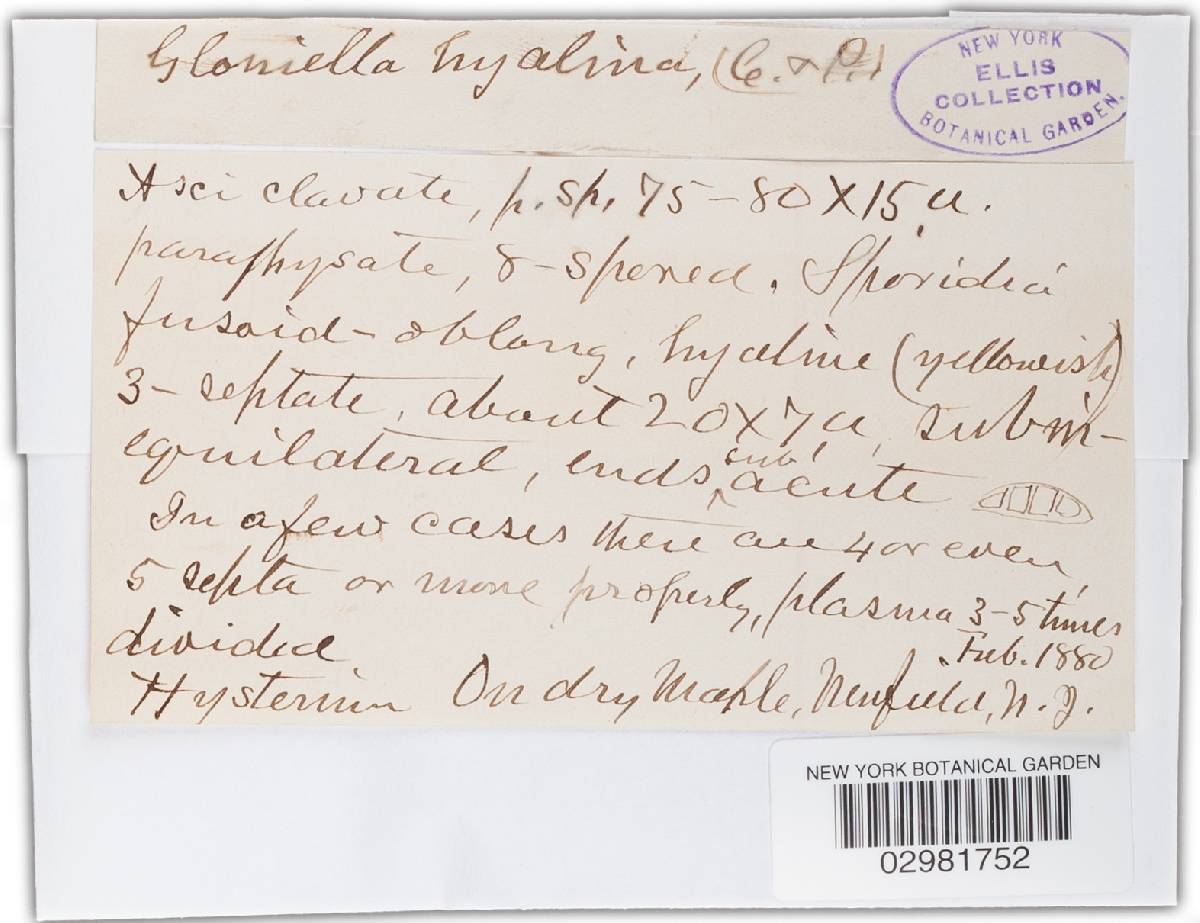 Gloniella hyalina, (C. & P.)
NEW YORK
ELLIS
COLLECTION
BOTANICAL GARDEN.
Asci clavate, p. sp. 75-80 X 15 µ.
paraphysate, 8-spored. Sporidia
fusoid-oblong, hyaline (yellowish)
3-septate, about 20 X 7 µ, subin-
equilateral, ends sub acute
In a few cases there are 4 or even
5 septa or more properly, plasma 3-5 times
divided.
Feb. 1880
Hysterium On dry Maple, Newfield, N. J.
NEW YORK BOTANICAL GARDEN
02981752